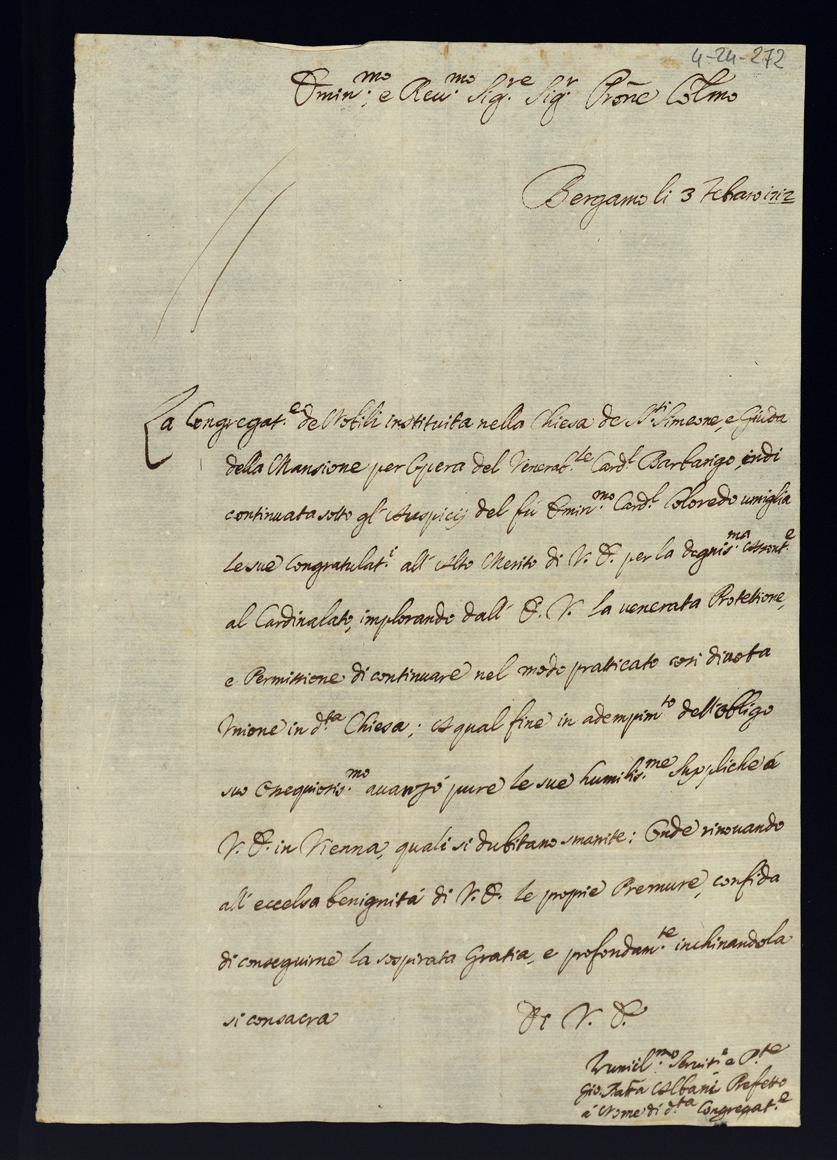 4-24-272
Emin.mo e Reu.mo Sig.re Sig.r Prone Colmo
Bergamo li 3 Febraro 1712
La Congregat.e de Nobili instituita nella Chiesa de S.ti Simeone, e Giuda
della Mansione per Opera del Venerab.le Card.l Barbarigo, indi
continuata sotto gl' Auspicij del fù Emin.mo Card.l Coloredo umiglia
le sue Congratulat.i all' Alto Merito di V. E. per la degnis.ma Assont.e
al Cardinalato, implorando dall' E. V. la venerata Protetione,
e Permissione di continuare nel modo pratticato così divota
Unione in d.ta Chiesa; A qual fine in adempim.to dell'obligo
suo ossequiosis.mo avanzò pure le sue humilis.me Suppliche à
V. E. in Vienna, quali si dubitano smarite; Onde rinouando
all' eccelsa benignità di V. E. le proprie Premure, confida
di conseguirne la sospirata Gratia, e profondam.te inchinandola
si consacra
Di V. E.
Humil.mo e P.te
Gio. Batta Albani Prefetto
à Nome di d.ta Congregat.e